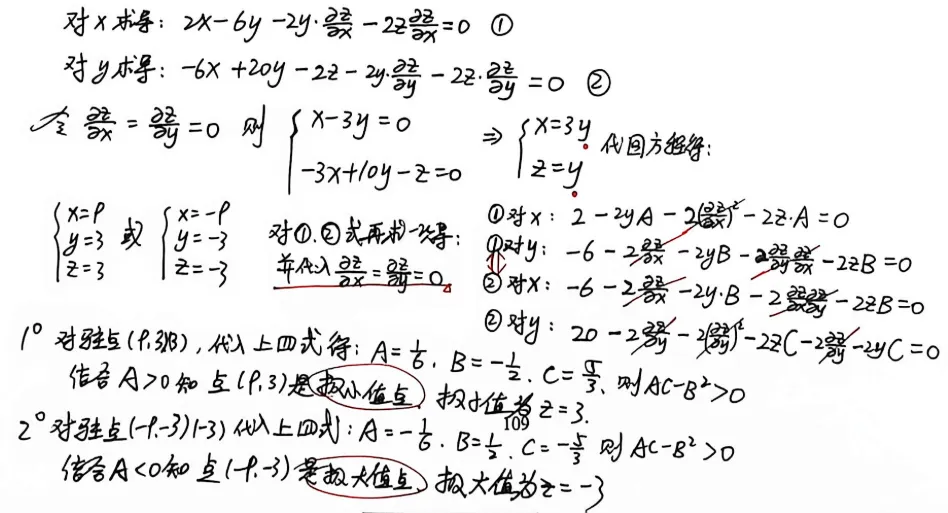 对x求导: 2x-6y-2y·∂z/∂x-2z∂z/∂x=0 ①
对y求导: -6x+20y-2z-2y·∂z/∂y-2z·∂z/∂y=0 ②
令 ∂z/∂x=∂z/∂y=0 则 { x-3y=0 -3x+10y-z=0 ⇒ { x=3y z=y 代回方程得:
{ x=9 y=3 z=3 或 { x=-9 y=-3 z=-3
对①.②式再求一次导:
并代入 ∂z/∂x=∂z/∂y=0
①对x: 2-2yA-2(∂z/∂x)²-2z·A=0
①对y: -6-2∂z/∂x-2yB-2∂z/∂y ∂z/∂x-2zB=0
②对x: -6-2∂z/∂x-2y·B-2∂z/∂x ∂z/∂y-2zB=0
②对y: 20-2∂z/∂y-2(∂z/∂y)²-2zC-2∂z/∂y-2yC=0
1° 对驻点(9,3,3), 代入上四式得: A=1/6. B=-1/2. C=5/3. 则AC-B²>0
结合A>0知 点(9,3)是极小值点. 极小值为z=3.
109
2° 对驻点(-9,-3)(-3)代入上四式: A=-1/6. B=1/2. C=-5/3 则AC-B²>0
结合A<0知 点(-9,-3)是极大值点. 极大值为z=-3